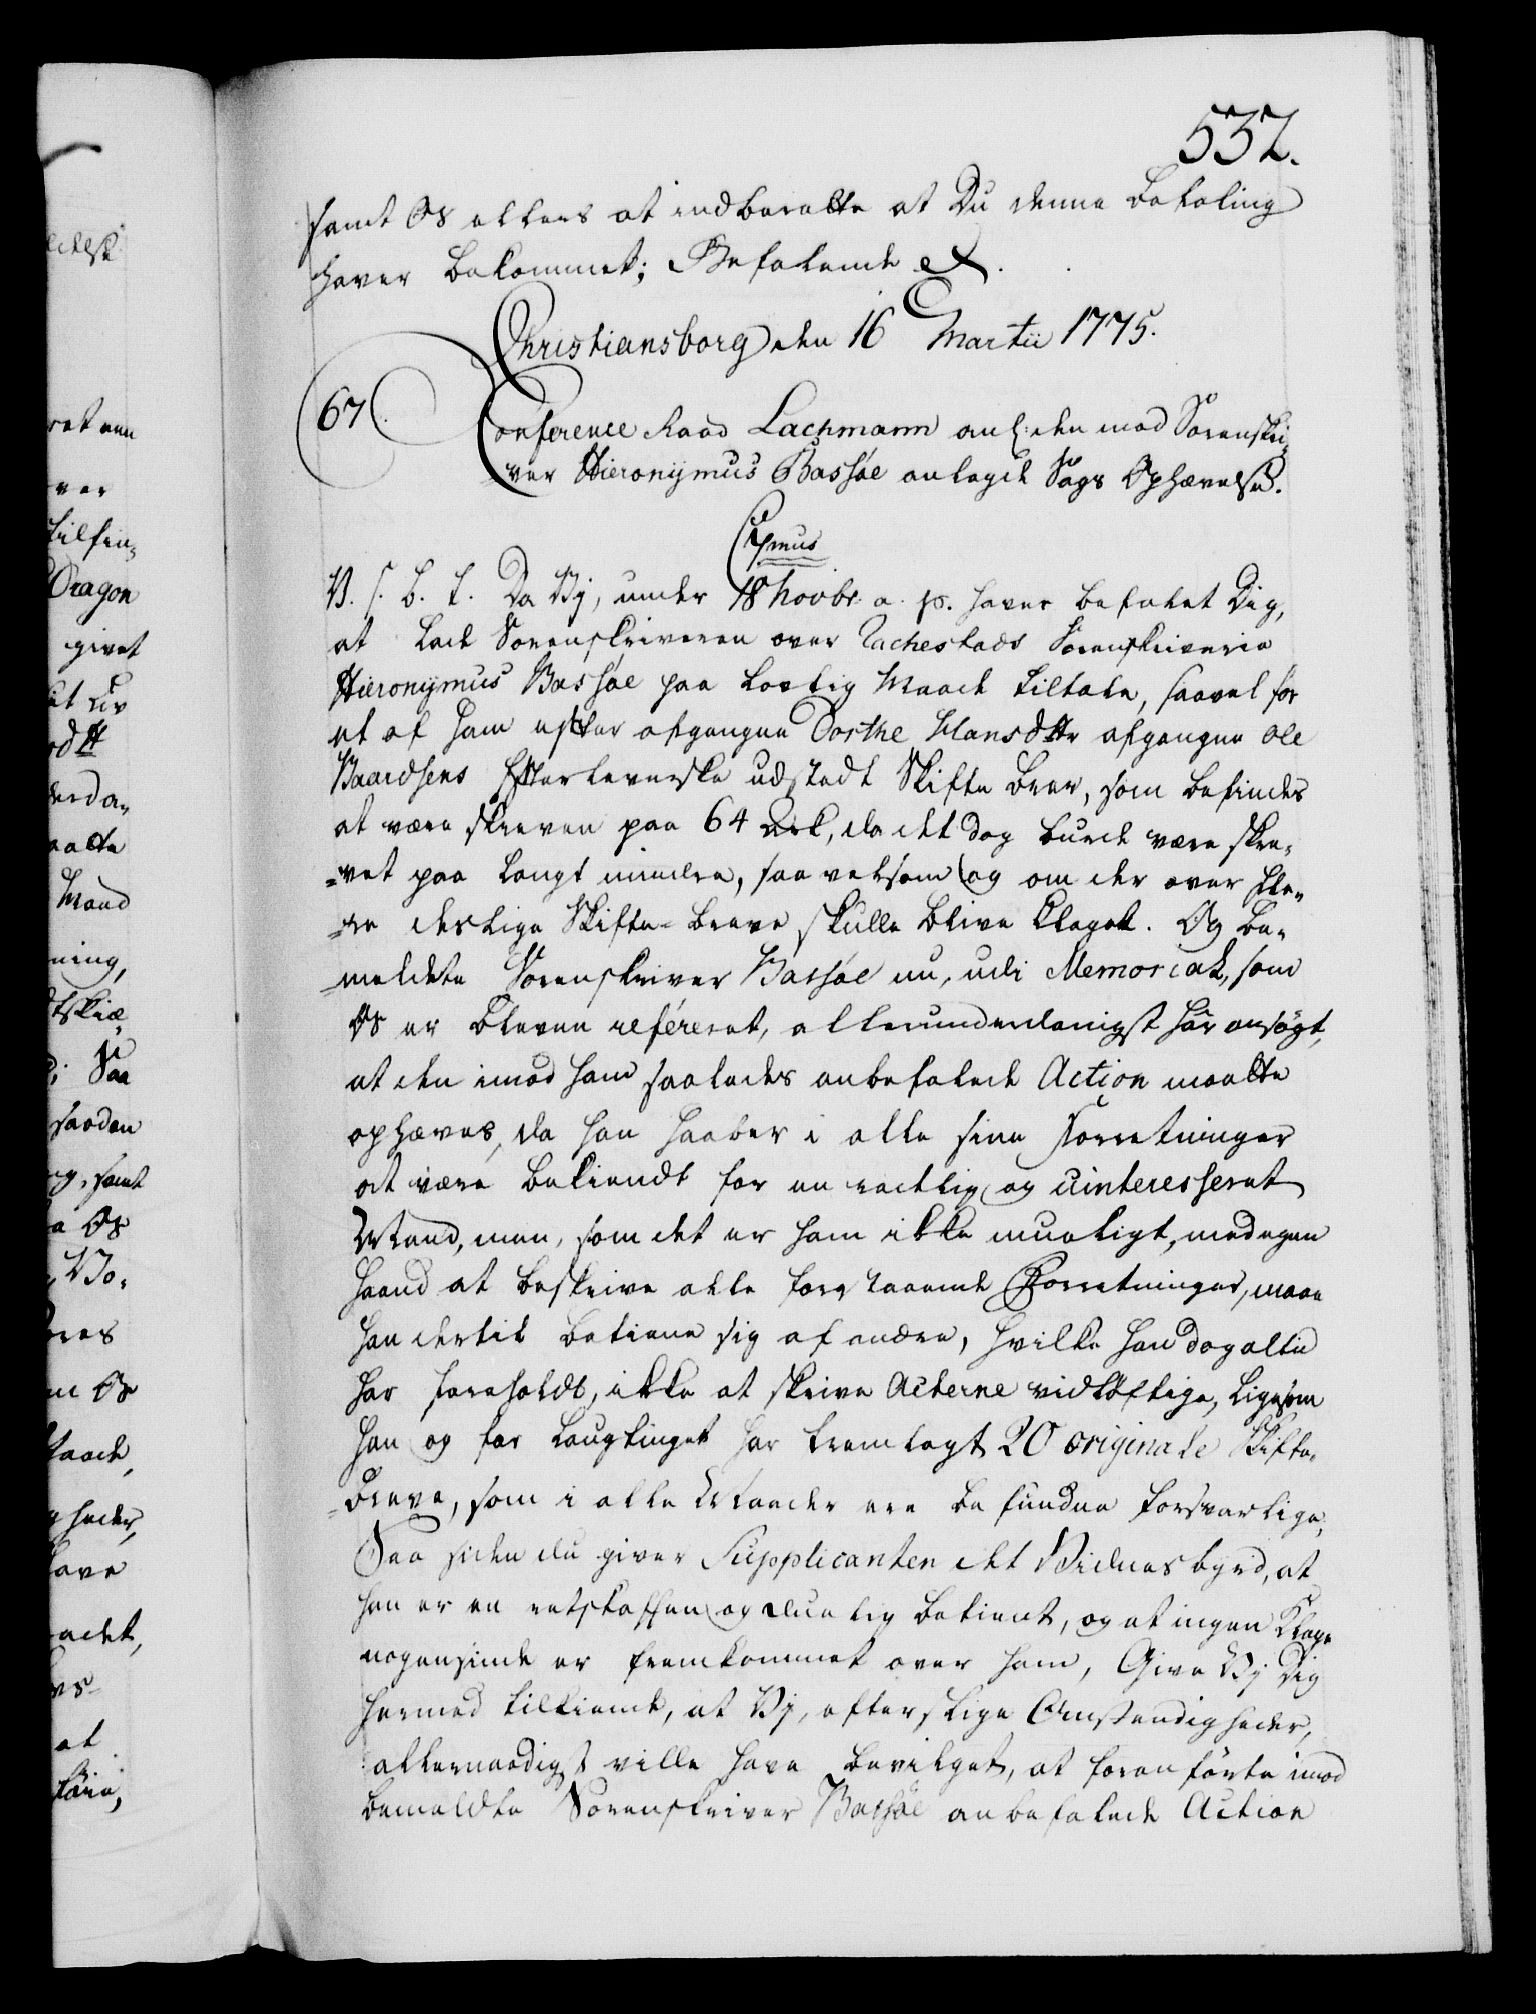 532.
samt Os ellers at indberette at Du denne befaling
haver bekommet; Befalende &.
Christiansborg den 16 Martii 1775.
67. Conference Raad Lachmann anl: den mod Sorenskri-
ver Hieronymus Bassøe anlagde Sags Ophævelse.
C 7mus
V. S. B. T. Da Vi, under 18 Novbr. a. p. haver befalet Dig,
at lade Sorenskriveren over Rachestads Sorenskriverie
Hieronymus Bassøe paa lovlig Maade tiltale, saavel for
et af ham efter afgangne Dorthe Hansdtr afgangne Ole
Baardsens Efterleverske udstædt Skifte Brev, som befindes
at være skreven paa 64 Ark, da det dog burde være skre-
=vet paa langt mindre, saa velsom og om der over fle-
=re deslige Skifte-breve skulle blive klaget. Og be-
=meldete Sorenskriver Bassøe nu, udi Memorial, som
Os er bleven refereret, allerunderdanigst har ansøgt,
at den imod ham saaledes anbefalede Action maatte
ophæves, da han haaber i alle sine Forretninger
at være bekiendt for en redelig og uinteresseret
Mand, men, som det er ham ikke mueligt, med egen
Haand at beskrive alle forestaaende Forretninger, maae
han dertil betiene sig af andre, hvilke han dog altid
har foreholdt, ikke at skrive Acterne vidtløftige, ligesom
han og for Laugtinget har fremlagt 20 originale Skifte-
=breve, som i alle Maader ere befundne forsvarlige,
Saa siden du giver Supplicanten det Vidnesbyrd, at
han er en retskaffen og duelig betient, og at ingen Klage
nogensinde er fremkommet over ham, Give Vi Dig
hermed tilkiende, at Vi, efter slige Omstændigheder,
allernaadigst ville have bevilget, at foranførte imod
bemeldte Sorenskriver Bassøe anbefalede Action